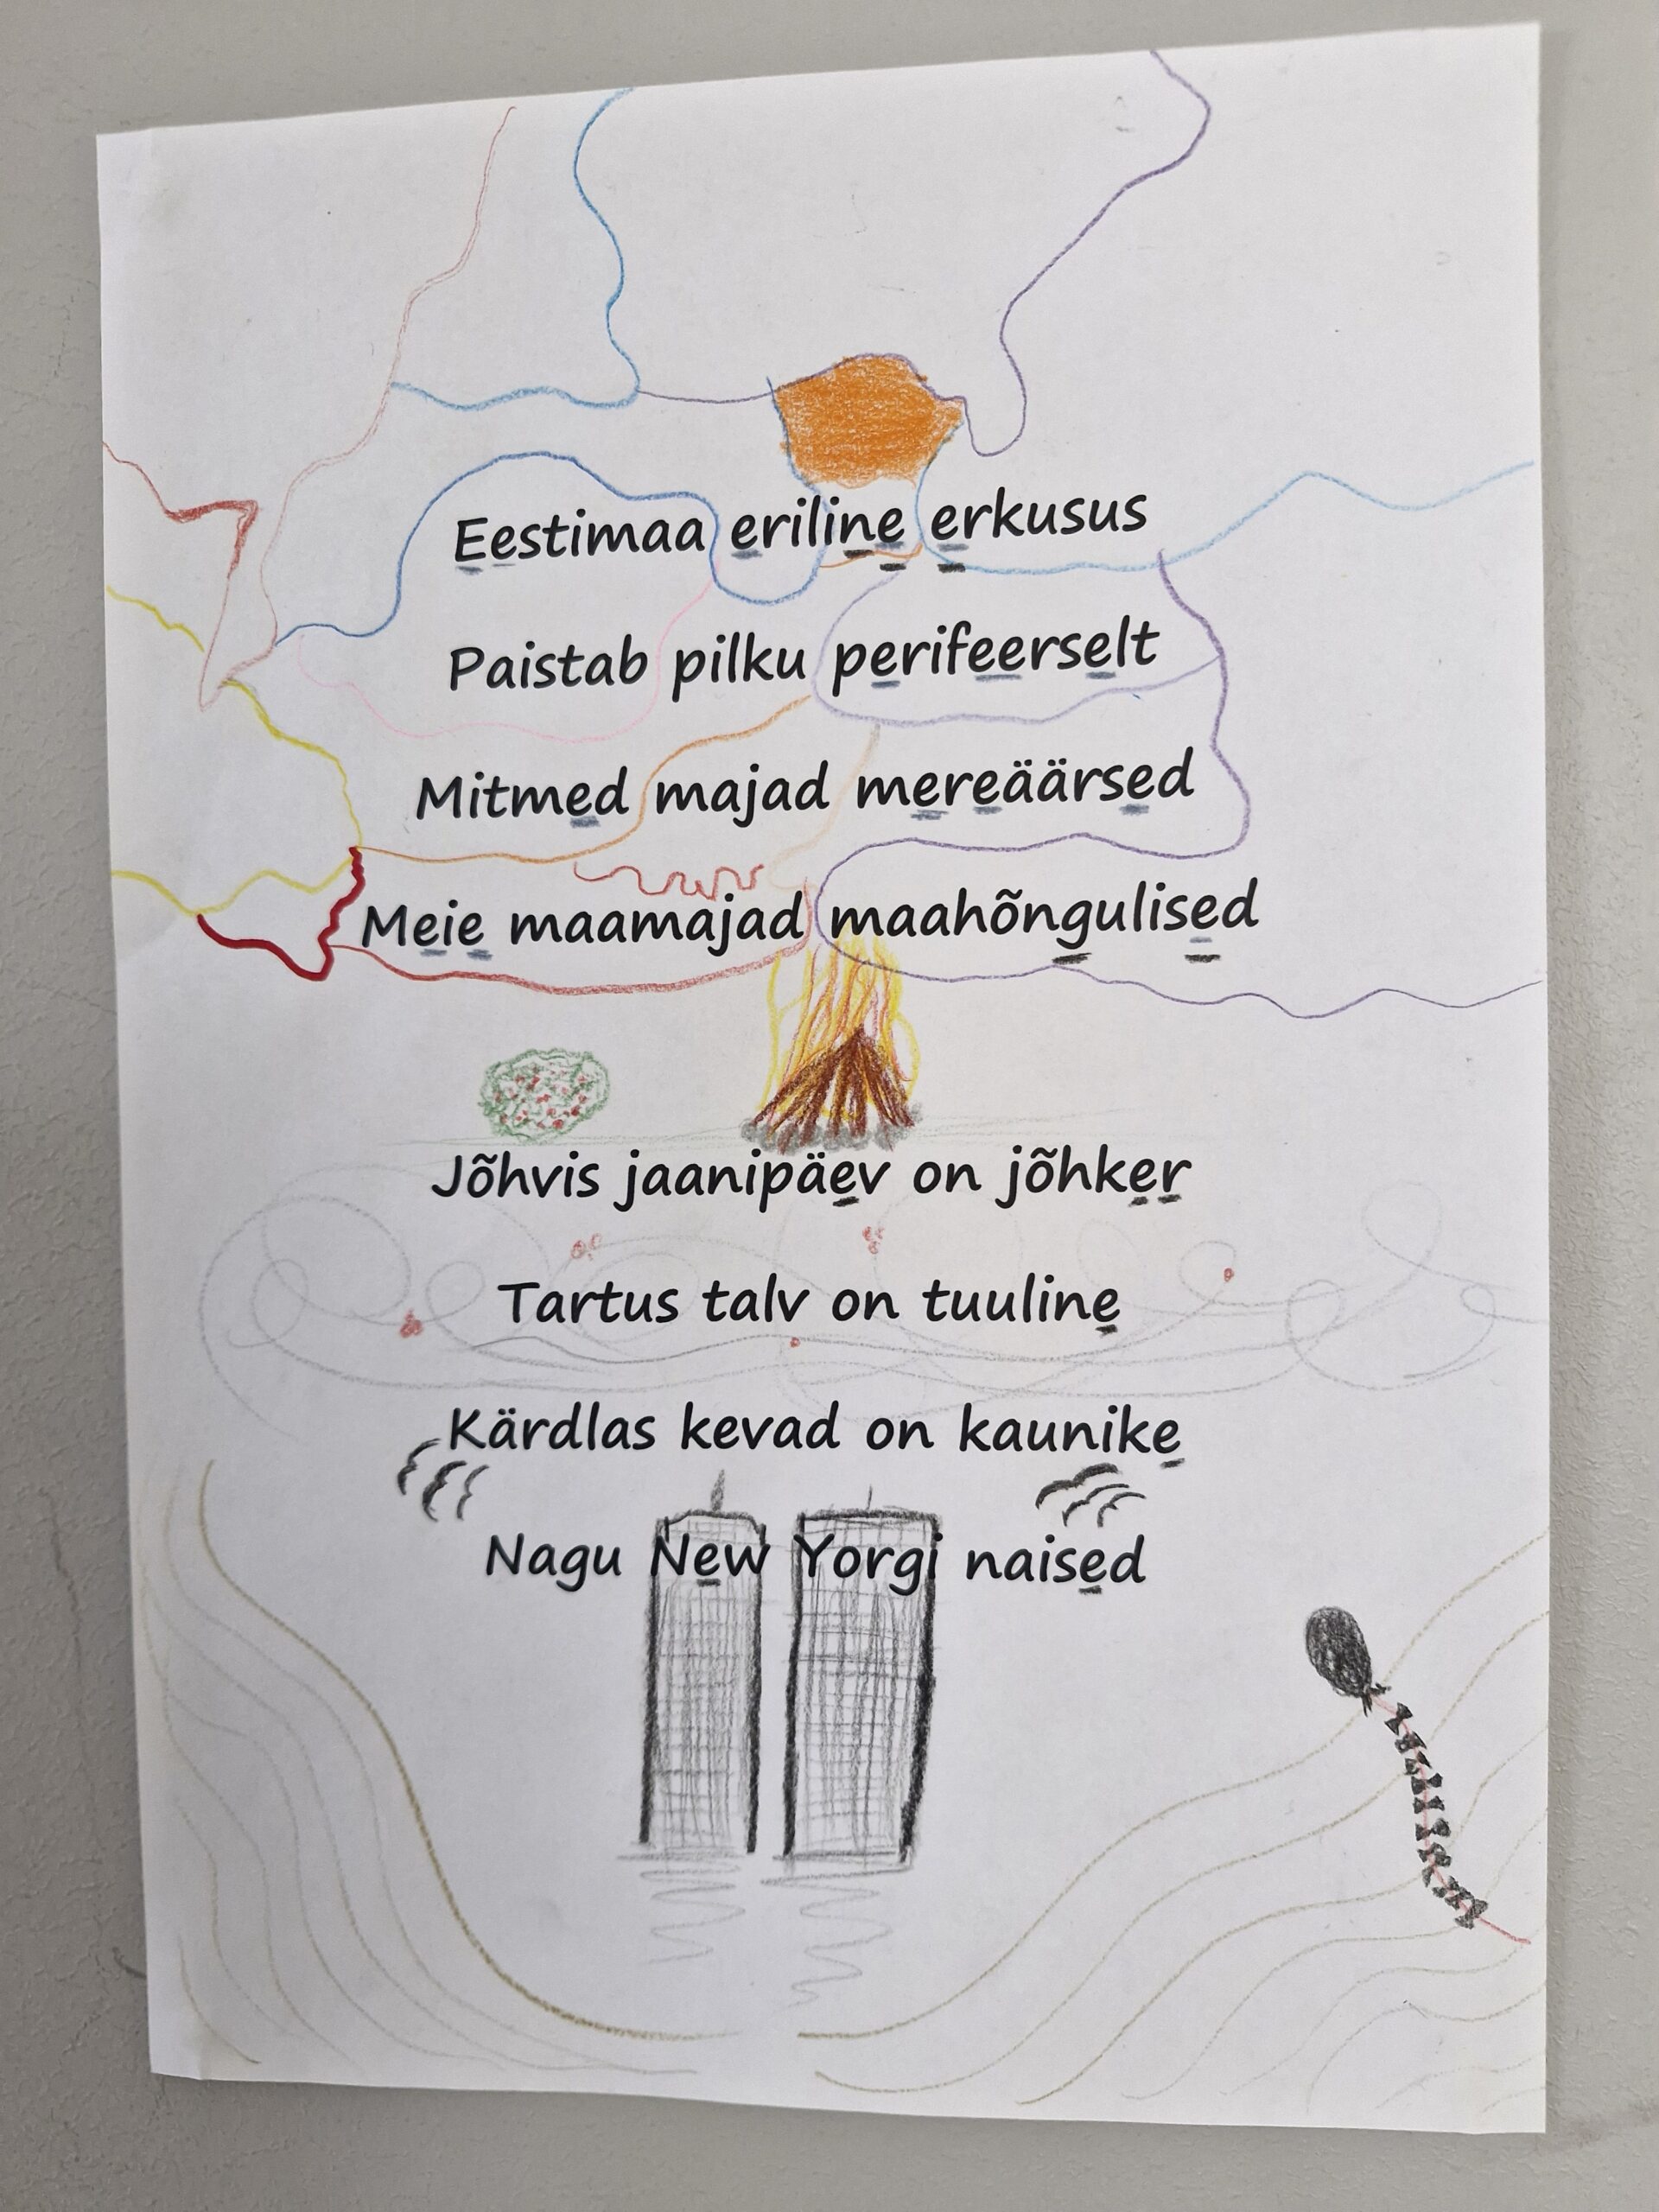 Eestimaa eriline erkusus
Paistab pilku perifeerselt
Mitmed majad mereäärsed
Meie maamajad maahõngulised
Jõhvis jaanipäev on jõhker
Tartus talv on tuuline
Kärdlas kevad on kaunike
Nagu New Yorgi naised